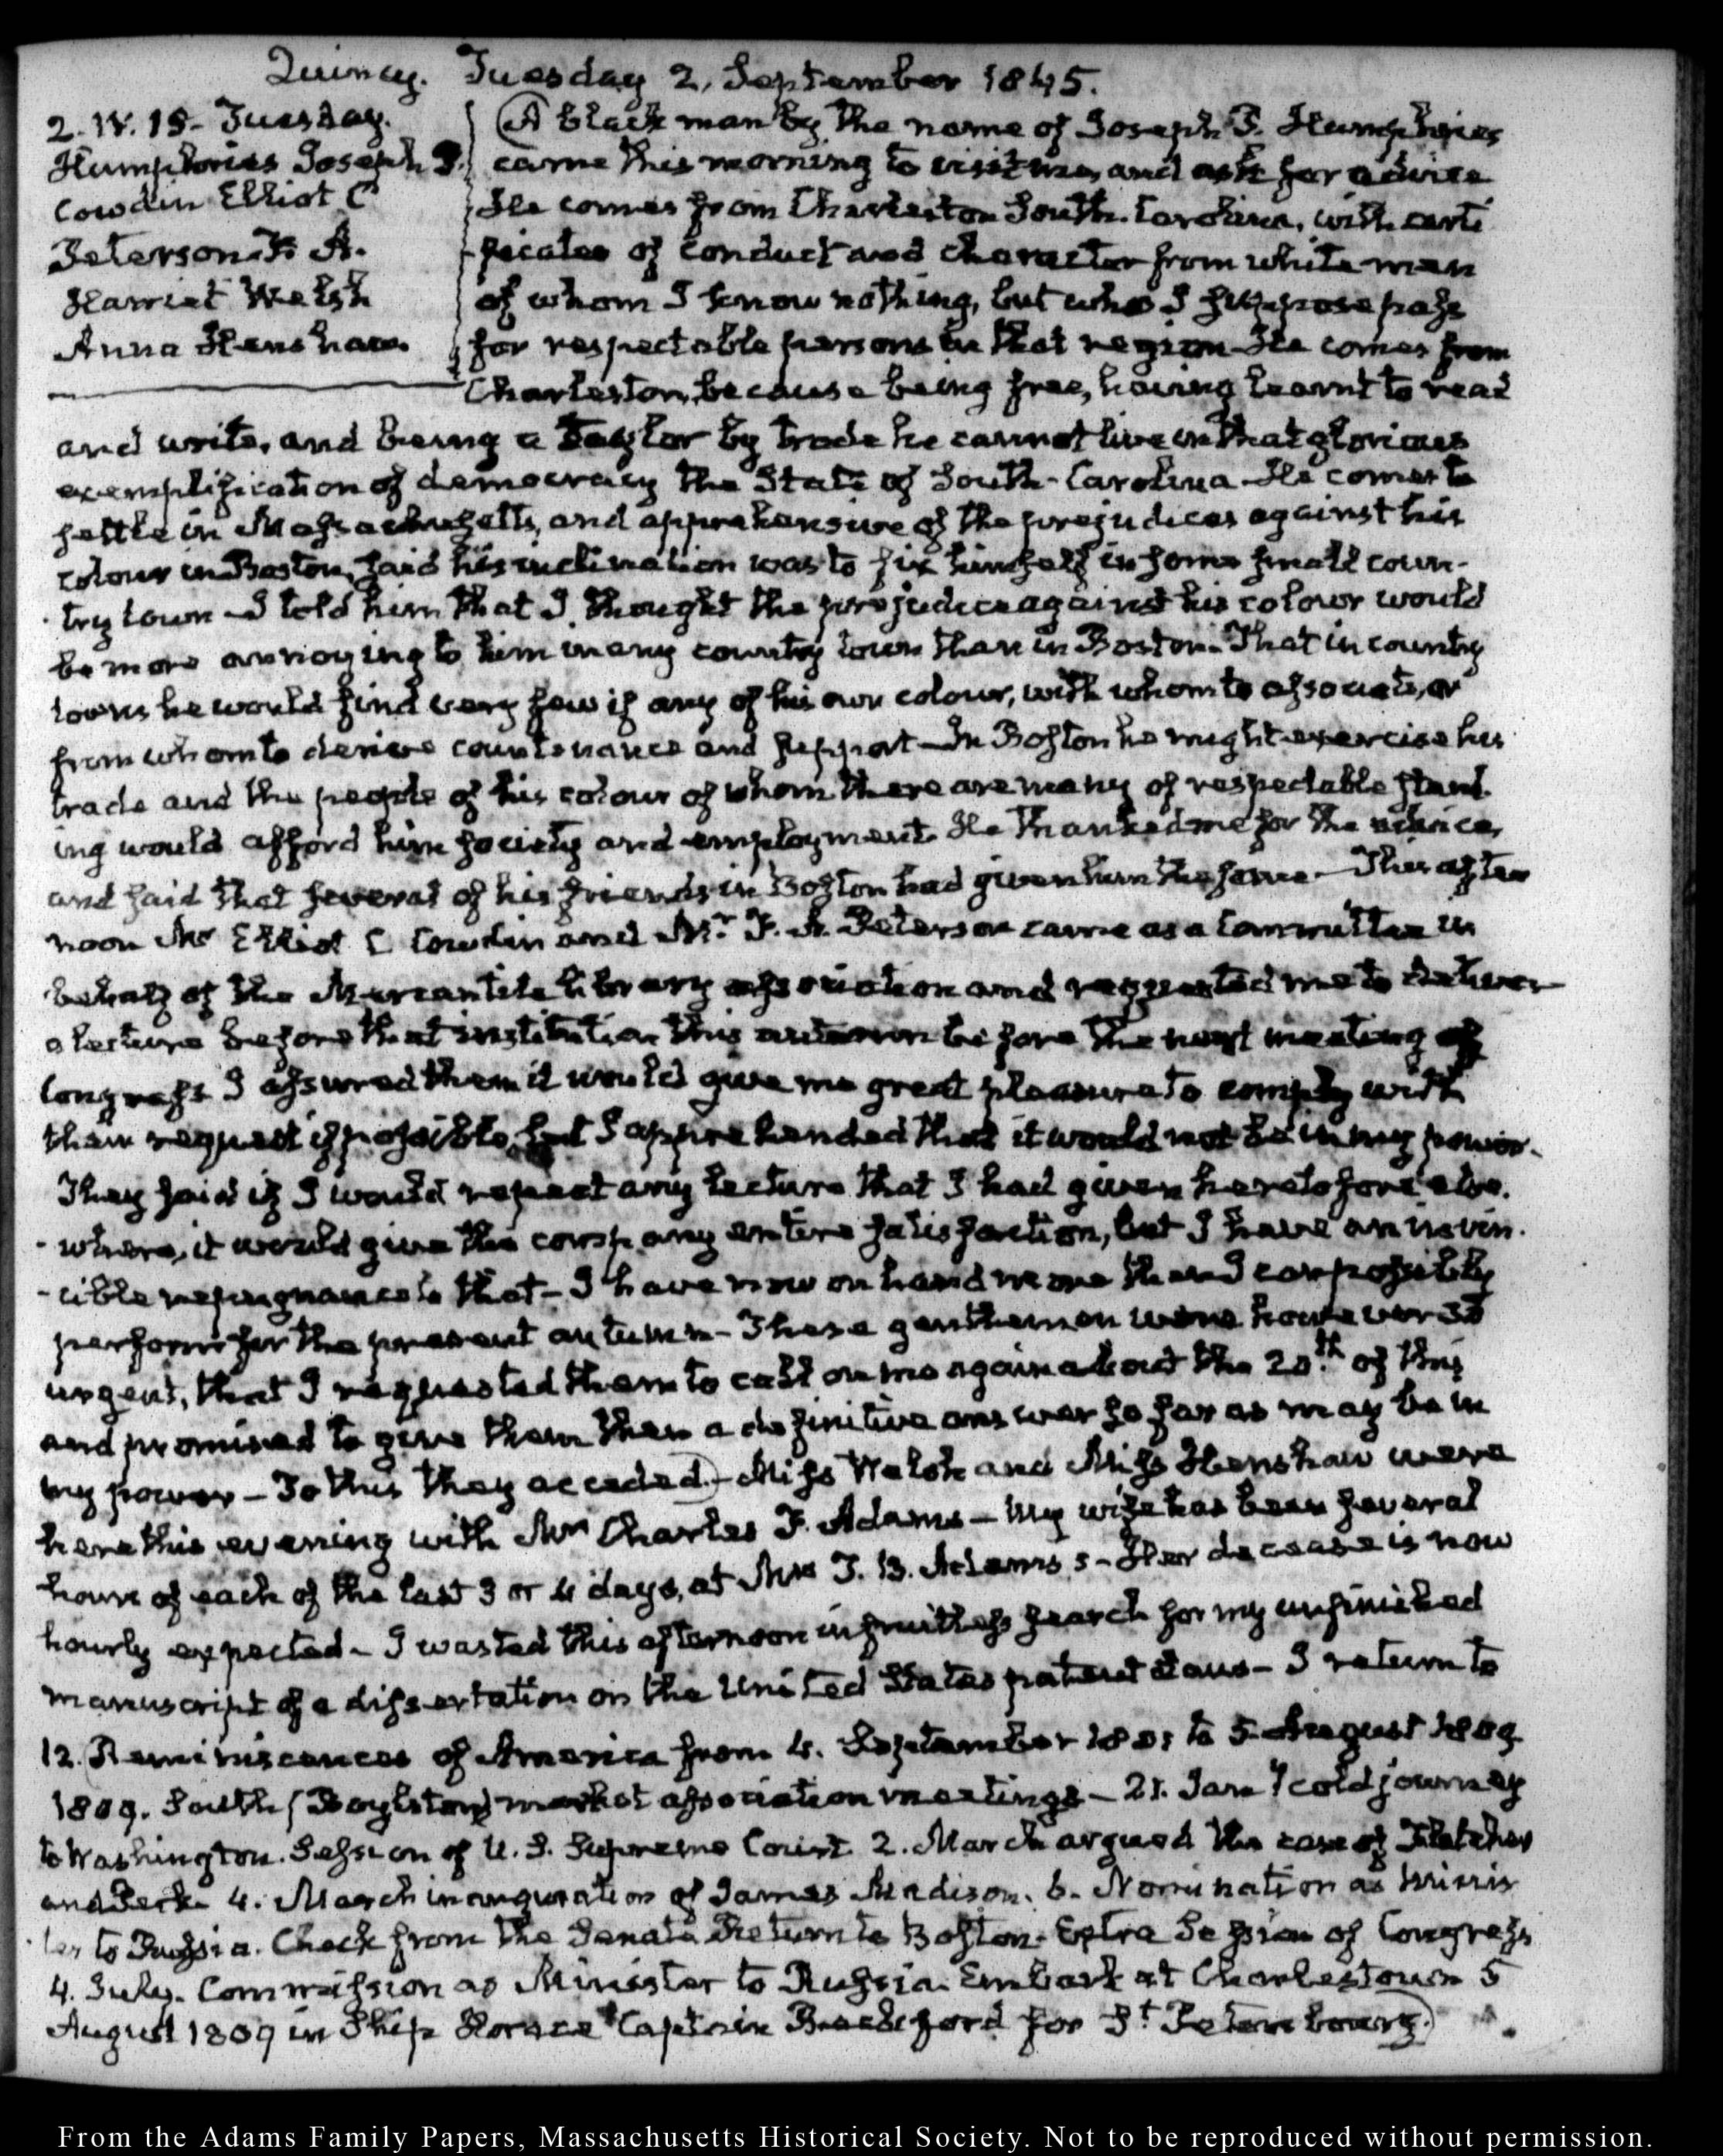 Quincy. Tuesday 2. September 1845.
2. IV. 15. Tuesday.
Humphries Joseph P.
Cowdin Elliot C
Peterson. F. A.
Harriet Welsh
Anna Henshaw.
A black man by the name of Joseph P. Humphries
came this morning to visit me, and ask for advice
He comes from Charleston South-Carolina, with certi
ficates of conduct and character from white men
of whom I know nothing, but who I suppose pass
for respectable persons in that region He comes from
Charleston, because being free, having learnt to read
and write, and being a taylor by trade he cannot live in that glorious
exemplification of democracy the State of South-Carolina. He comes to
settle in Massachusetts, and apprehensive of the prejudices against his
colour in Boston, said his inclination was to fix himself in some small coun-
try town - I told him that I thought the prejudice against his colour would
be more annoying to him in any country town than in Boston. That in country
towns he would find very few if any of his own colour, with whom to associate, or
from whom to derive countenance and support - In Boston he might exercise his
trade and the people of his colour of whom there are many of respectable stand-
ing would afford him society and employment. He thanked me for the advice,
and said that several of his friends in Boston had given him the same - This after
noon Mr Elliot C Cowdin and Mr. F. A. Peterson came as a Committee in
behalf of the Mercantile library association and requested me to deliver
a lecture before that institution this autumn before the next meeting of
Congress I assured them it would give me great pleasure to comply with
their request if possible, but I apprehended that it would not be in my power.
They said if I would repeat any lecture that I had given heretofore else-
-where, it would give the company entire satisfaction, but I have an invin-
-cible repugnance to that - I have now on hand more than I can possibly
perform for the present autumn - These gentlemen were however so
urgent, that I requested them to call on me again about the 20th of this
and promised to give them then a definitive answer so far as may be in
my power - To this they acceded.) - Miss Welsh and Miss Henshaw were
here this evening with Mrs Charles F. Adams - My wife has been several
hours of each of the last 3 or 4 days, at Mrs T. B. Adams's - Her decease is now
hourly expected - I wasted this afternoon in fruitless search for my unfinished
manuscript of a dissertation on the United States patent laws - I return to
12. Reminiscences of America from 4. September 1801 to 5. August 1809
1809. South (Boylston) market association meetings - 21. Jany cold journey
to Washington. Session of U. S. Supreme Court. 2. March argued the case of Fletcher
and Peck. 4. March inauguration of James Madison. 6. Nomination as Minis
ter to Russia. Check from the Senate Return to Boston. Extra Session of Congress
4. July. Commission as Minister to Russia. Embark at Charlestown 5
August 1809 in Ship Horace Captain Beckford for St Petersbourg.)
From the Adams Family Papers, Massachusetts Historical Society. Not to be reproduced without permission.